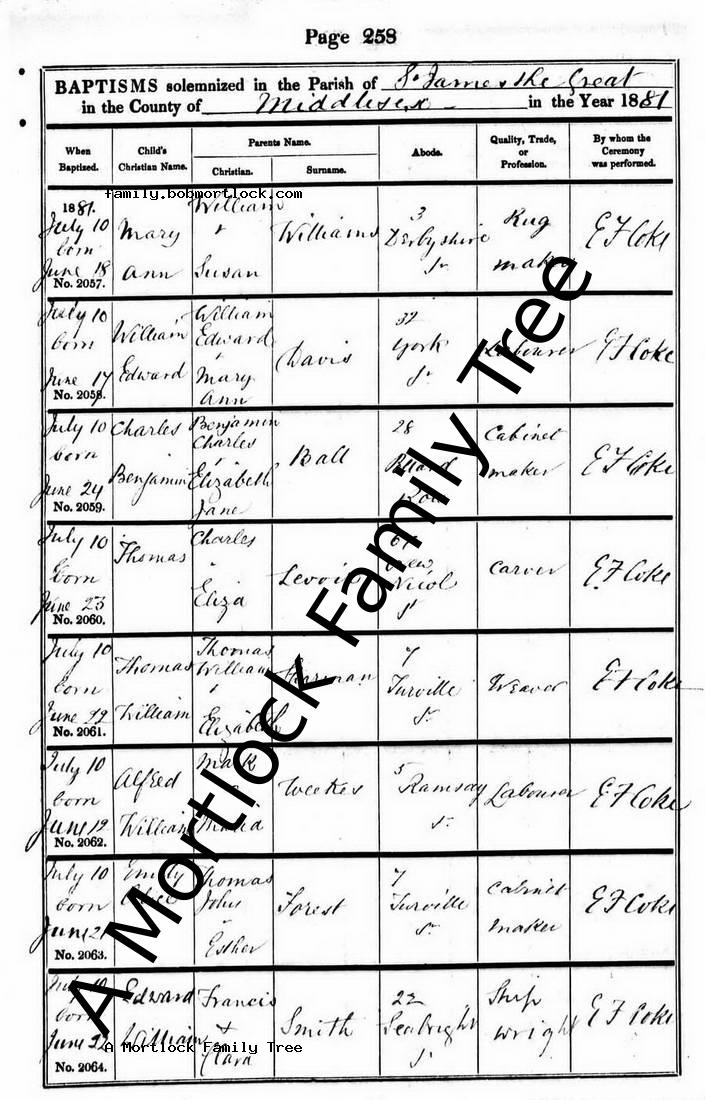 Page 258
BAPTISMS solemnized in the Parish of St James the Great
in the County of Middlesex in the Year 1881
When Baptized.
Child's Christian Name.
Parents Name.
Christian.
Surname.
Abode.
Quality, Trade, or Profession.
By whom the Ceremony was performed.
family.bobmortlock.com
1881.
July 10 born June 18
No. 2057.
Mary Ann
William & Susan
Williams
3 Derbyshire St
Rug maker
E F Coke
July 10 born June 17
No. 2058.
William Edward
William Edward & Mary Ann
Davis
York St
Labourer
E F Coke
July 10 born June 24
No. 2059.
Charles Benjamin
Benjamin Charles & Elizabeth Jane
Ball
28
Cabinet maker
E F Coke
July 10 born June 23
No. 2060.
Thomas
Charles & Eliza
New Nicol St
Carver
E F Coke
July 10 born June 29
No. 2061.
Thomas William
Thomas William & Elizabeth
7 Turville St
Weaver
E F Coke
July 10 born June 19
No. 2062.
Alfred William
Mark
Weekes
5 Ramsay St
Labourer
E F Coke
July 10 born June 21
No. 2063.
Emily
Thomas John & Esther
Forest
7 Turville St
Cabinet maker
E F Coke
July 10 born June 22
No. 2064.
Edward William
Francis & Clara
Smith
22 Seabright St
Ship wright
E F Coke
A Mortlock Family Tree
A Mortlock Family Tree